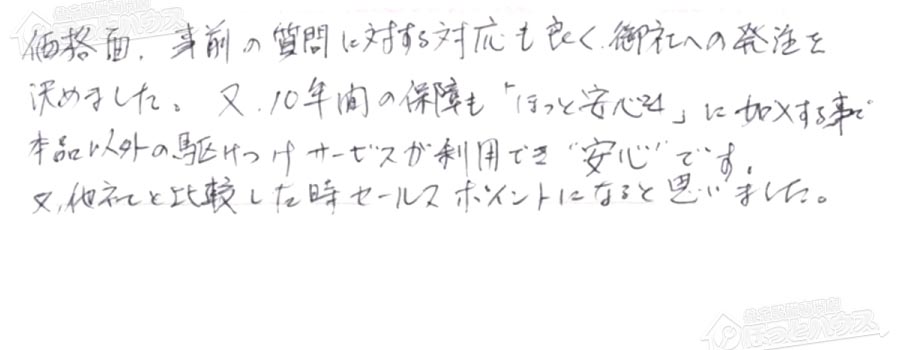 価格面、事前の質問に対する対応も良く、御社への発注を
決めました。又、10年間の保障も「ほっと安心24」に加入する事で
本品以外の駆けつけサービスが利用でき"安心"です。
又、他社と比較した時セールスポイントになると思いました。
ほっとハウス